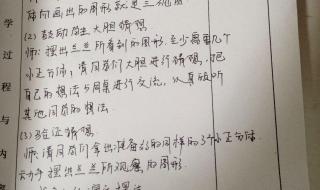 体向画出的图形就是三视图
(2)鼓励学生大胆猜想
师:摆出兰兰所看到的图形,至少需要几个
小正方体,请同学们大胆进行猜想,把
自己的想法与同桌进行交流,认真倾听
其他同学的想法.
(3)验证猜想
师:请同学们拿出准备好的同样的小正方体
动手摆出兰兰所观察的图形.
学
过
程
与
内